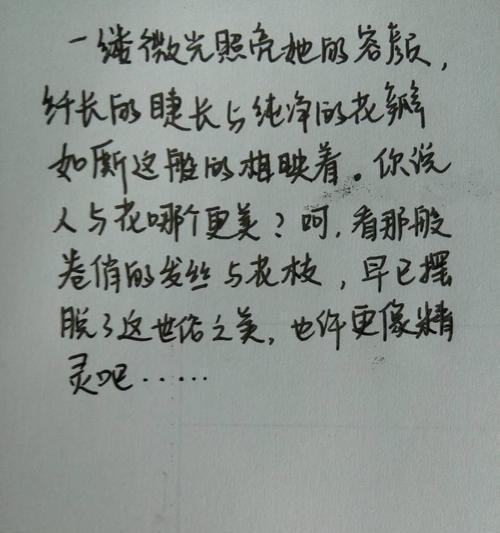 一缕微光照亮她的容颜，
纤长的睫长与纯净的花瓣
如斯这般的相映着。你说
人与花哪个更美？呵，看那般
卷俏的发丝与花枝，早已摆
脱了这世俗之美，也许更像精
灵吧······